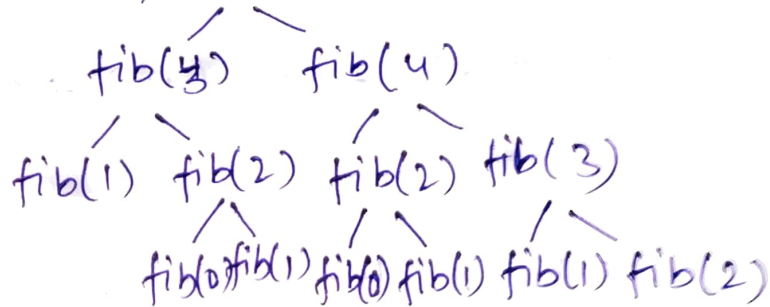 fib(3) fib(4)
fib(1) fib(2) fib(2) fib(3)
fib(0) fib(1) fib(0) fib(1) fib(1) fib(2)